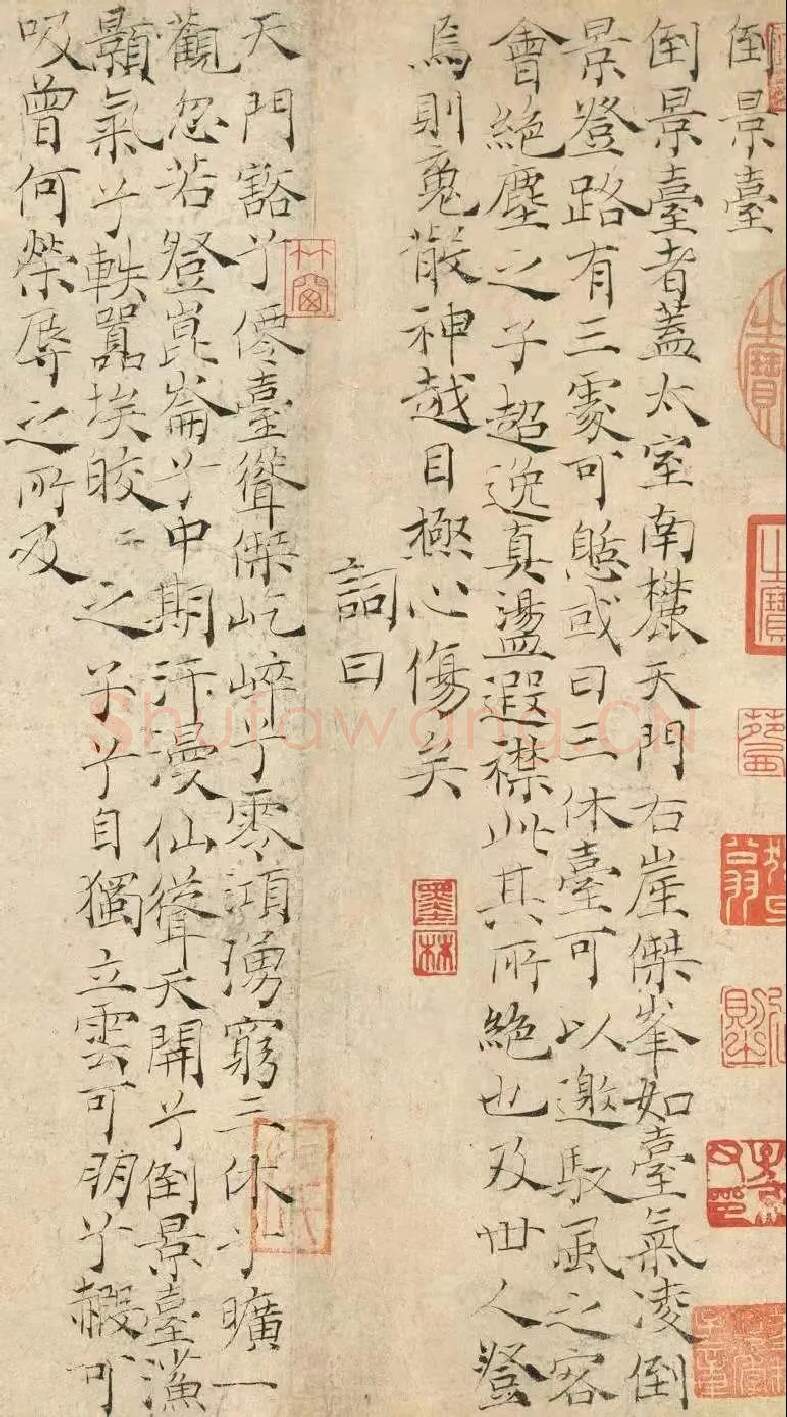 倒景臺
倒景臺者蓋太室南麓天門右崖傑峯如臺氣凌倒
景登路有三處可憇或曰三休臺可以邀馭風之客
會絕塵之子超逸真盪遐襟此其所絕也及世人登
焉則魂散神越目極心傷矣
墨林
詞曰
天門豁兮僊臺聳傑屹崒兮零澒湧窮三休兮曠一
觀忽若登崑崙兮中期汗漫仙聳天開兮倒景臺鯊
顥氣兮軼囂埃皎〻之子兮自獨立雲可朋兮赮可
吸曾何榮辱之所及
shufawang.CN